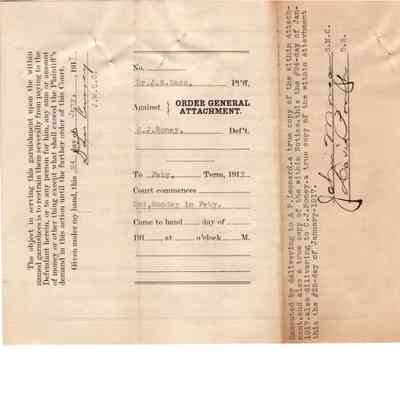 The object in serving this garnishment upon the within
named garnishees is to restrain them severally from paying to the
Defendant herein, or to any person for him, any sum or amount
of money or other thing except what shall exceed the Plaintiff's
demand in this action until the further order of this Court.
Given under my hand, this day of Jany. 191
J.M.C.
No.
Dr. J. S. Bass. Pl'ff,
Against } ORDER GENERAL ATTACHMENT.
C.J.Roney. Def't.
To Feby. Term, 191
Court commences
2nd, Monday in Feby.
Came to hand day of
191 at o'clock M.
Executed by delivering to A P. Leonard, a true copy of the within Attach-
ment, and also a true copy of the within Notice, this the #25-day of Jan-
1917. also dilivering to C.J. Roney, a true copy of the within Attachment
this the #25-day of January-1917.
S.M.C.
D.S.